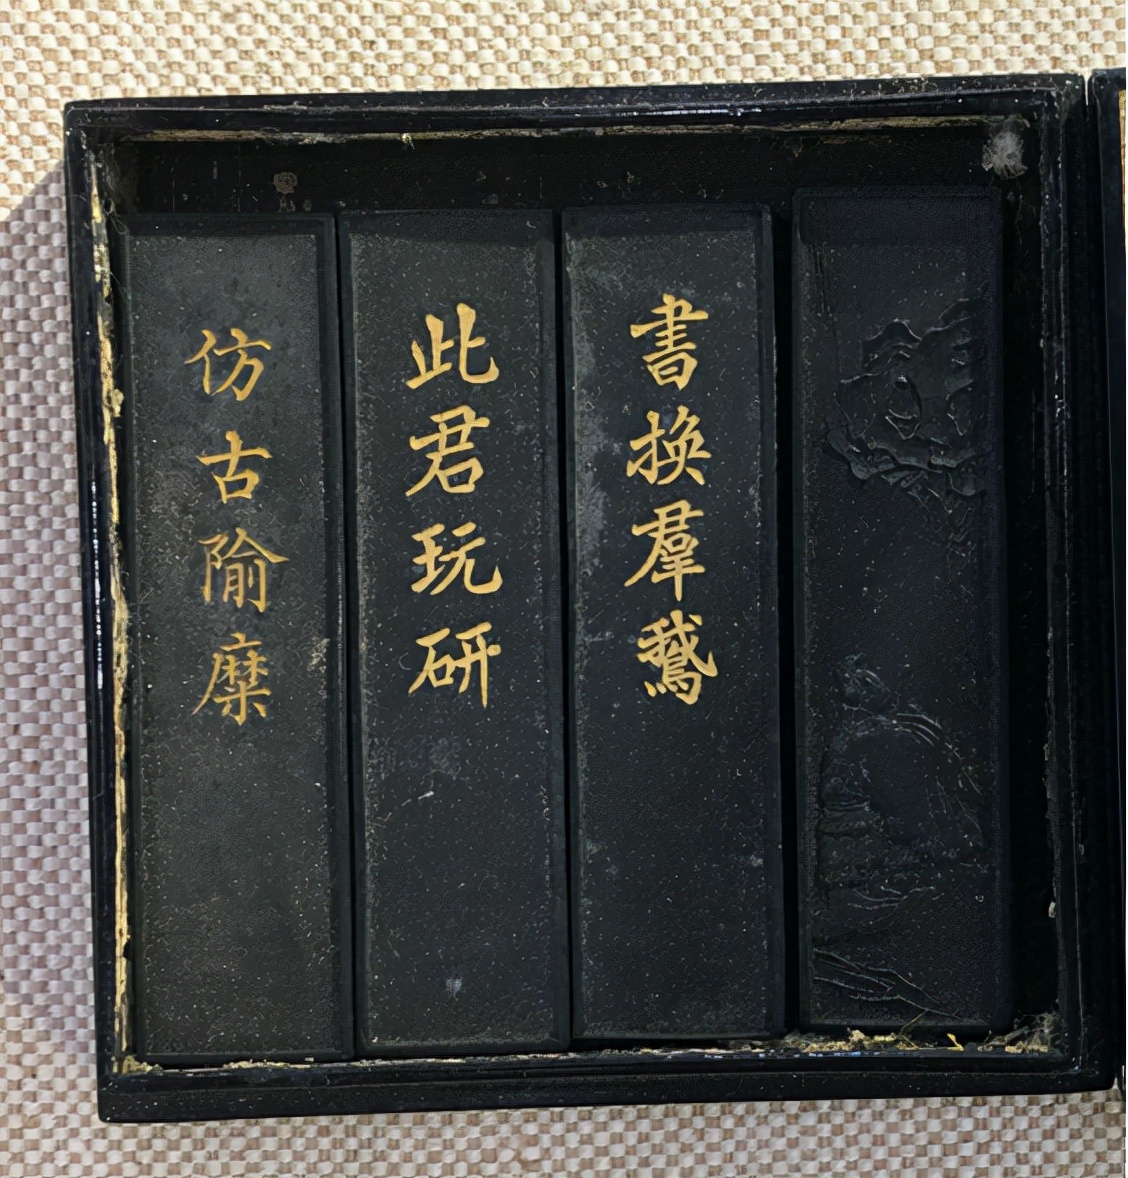 書換羣鵝
此君玩研
仿古隃糜